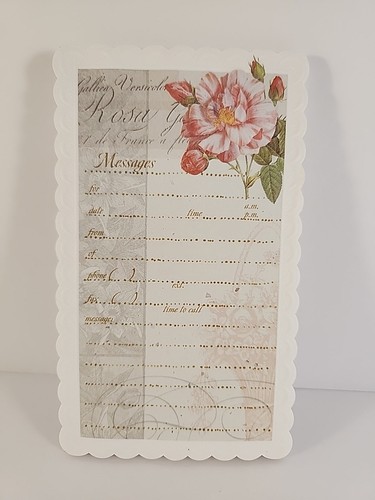 Gallica Versicolo
Rosa Ga
de France a fle
Messages
for
a.m.
date time p.m.
from
of
phone ( )
ext.
fax ( )
time to call
message: